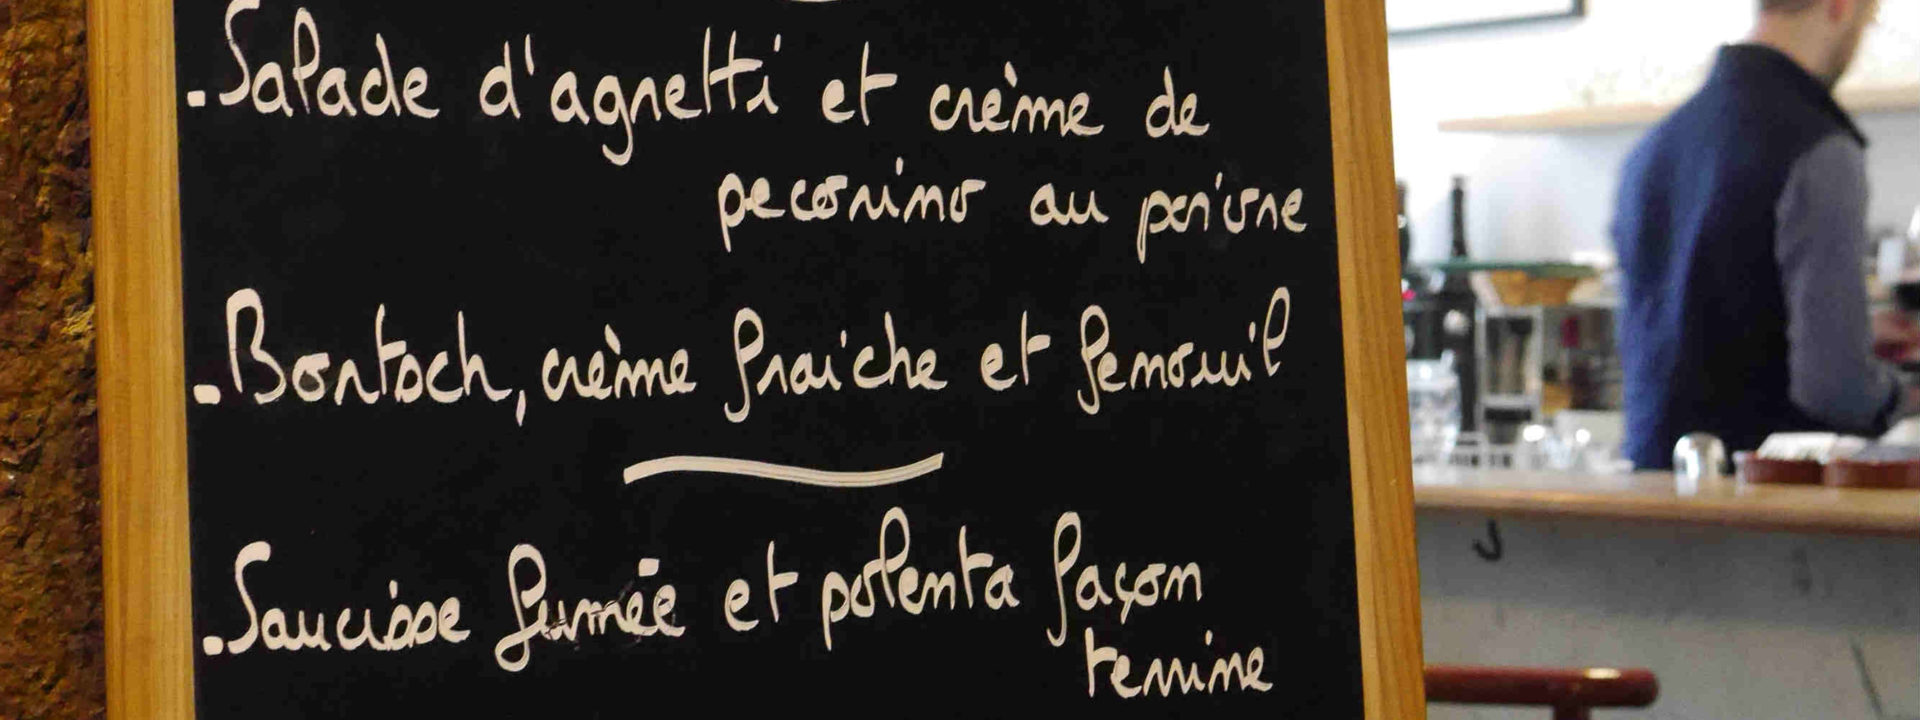 . Salade d'agnetti et crème de
pecorino au poivre
. Bortsch, crème fraiche et fenouil
. Saucisse fumée et polenta façon
terrine